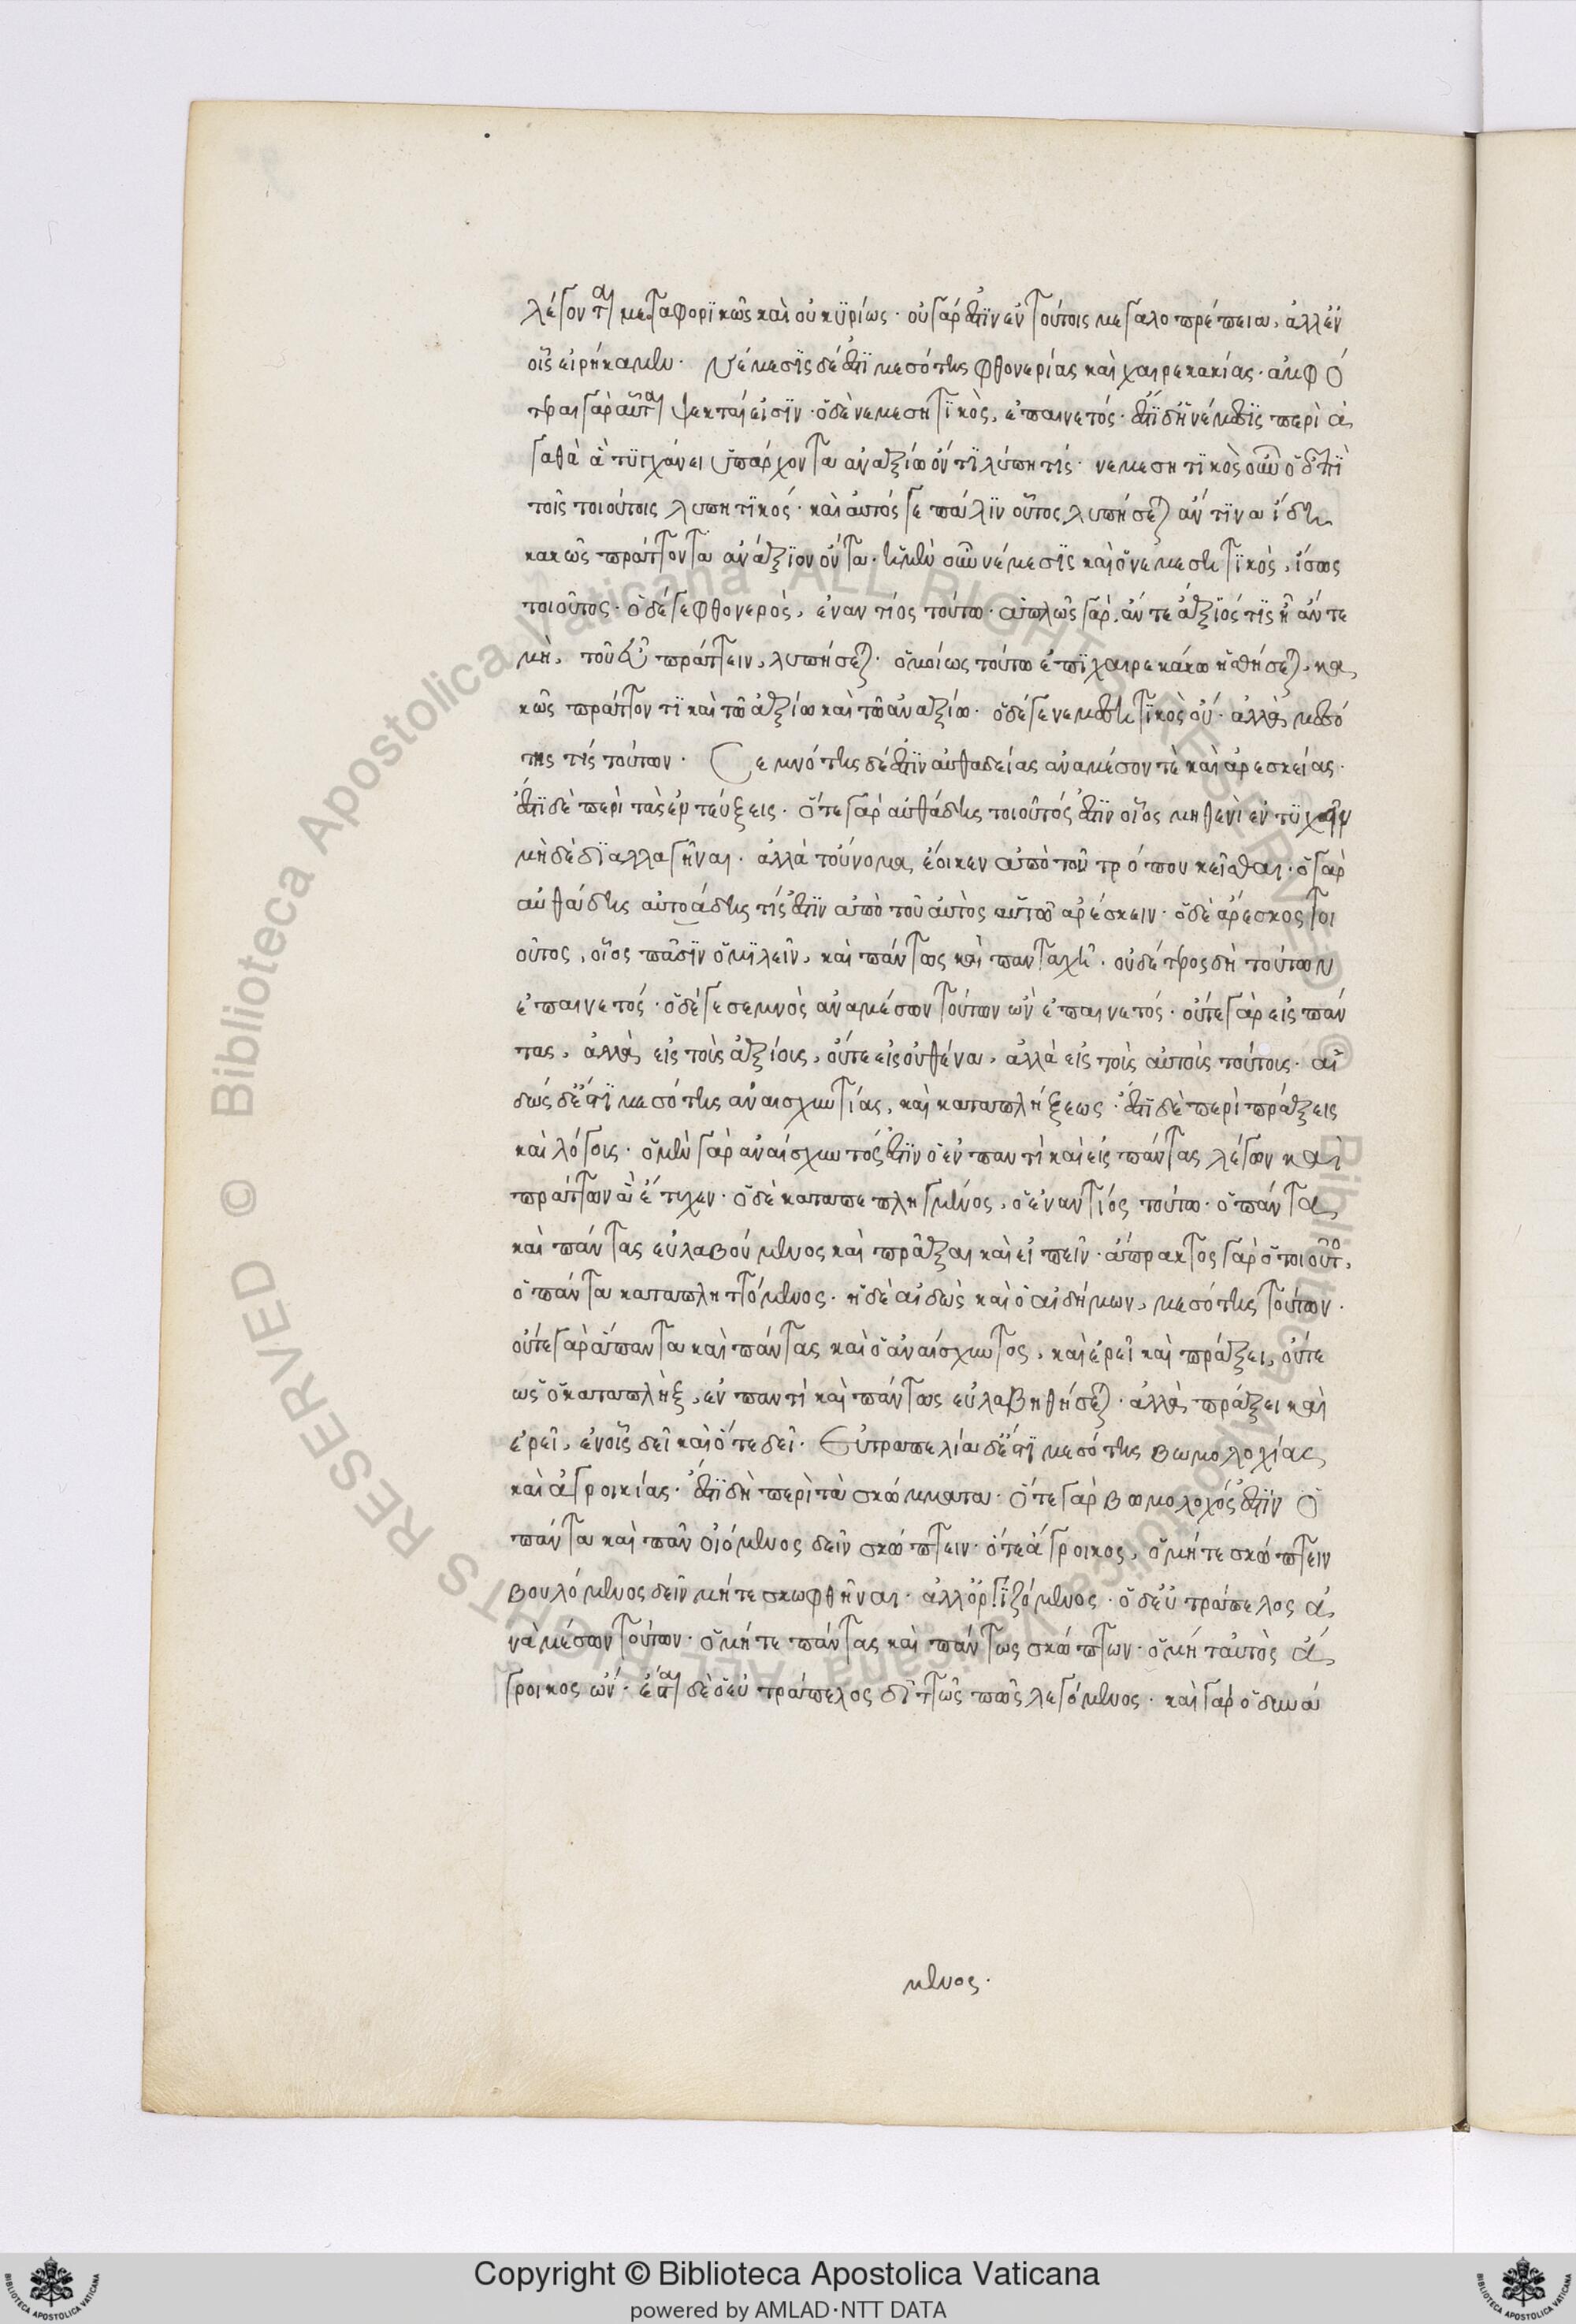 λέγονται μεταφορϊκῶς καὶ οὐ κϋρίως· οὐ γάρ ἐστϊν ἐν τούτοις μεγαλοπρέπεια, ἀλλ' ἐν
οἷς εἰρήκαμεν· Νέμεσϊς δέ ἐστϊ μεσότης φθονερίας καὶ χαιρεκακίας· ἀμφό
τεραι γὰρ αὗται ψεκταί εἰσϊν· ὁ δὲ νεμεσητϊκὸς, ἐπαινετός· ἔστϊ δὴ νέμεσϊς περὶ ἀ
γαθὰ ἃ τϋγχάνει ὑπάρχοντα ἀναξίῳ ὄντϊ λύπη τίς· νεμεσητϊκὸς οὖν ὁ ἐπῒ
τοῖς τοιούτοις λυπητϊκός· καὶ αὐτός γε πάλϊν οὗτος λυπήσεται ἄν τϊνα ἴδη
κακῶς πράττοντα ἀνάξϊον ὄντα· ἡ μὲν οὖν νέμεσϊς καὶ ὁ νεμεσητϊκὸς, ἴσως
τοιοῦτος· ὁ δέ γε φθονερὸς, ἐναντίος τούτω· ἁπλῶς γὰρ, ἄν τε ἄξϊός τϊς ἦ ἄν τε
μὴ, τοῦ εὖ πράττειν, λυπήσεται· ὁμοίως τούτω ἐπϊχαιρεκάκω ἡσθήσεται, κα
κῶς πράττοντϊ καὶ τῶ ἀξίω καὶ τῶ ἀναξίω· ὁ δέ γε νεμεσητϊκὸς οὔ· ἀλλὰ μεσό
της τίς τούτων· Σεμνότης δέ ἐστϊν αὐθαδείας ἀναμέσον τὲ καὶ ἀρεσκείας·
ἔστϊ δὲ περὶ τὰς ἐντεύξεις· ὅ τε γὰρ αὐθάδης τοιοῦτός ἐστϊν οἷος μηθενὶ ἐντϋχεῖν
μὴ δὲ δϊαλλαγῆναι· ἀλλὰ τοὔνομα, ἔοικεν ἀπὸ τοῦ τρόπου κεῖσθαι· ὁ γὰρ
αὐθάδης αὐτοάδης τίς ἐστϊν ἀπὸ τοῦ αὐτὸς αὑτῶ ἀρέσκειν· ὁ δὲ ἄρεσκος τοι
οῦτος, οἷος πᾶσϊν ὁμϊλεῖν, καὶ πάντως καὶ πανταχῆ· οὐδέτερος δὴ τούτων
ἐπαινετός· ὁ δέ γε σεμνὸς ἀναμέσων τούτων ὢν ἐπαινετός· οὔτε γὰρ εἰς πάν
τας, ἀλλὰ εἰς τοὺς ἀξίους, οὔτε εἰς οὐθένα, ἀλλὰ εἰς τοὺς αὐτοὺς τούτους· αἰ
δώς δ' ἔστϊ μεσότης ἀναισχυντίας, καὶ καταπλήξεως· ἔστϊ δὲ περὶ πράξεις
καὶ λόγους· ὁ μὲν γὰρ ἀναίσχυντός ἐστϊν ὁ ἐν παντὶ καὶ εἰς πάντας λέγων καὶ
πράττων ἃ ἔτυχεν· ὁ δὲ καταπεπληγμένος, ὁ ἐναντίος τούτω· ὁ πάντα
καὶ πάντας εὐλαβούμενος καὶ πρᾶξαι καὶ εἰπεῖν· ἄπρακτος γὰρ ὁ τοιοῦτος,
ὁ πάντα καταπληττόμενος· ἡ δὲ αἰδὼς καὶ ὁ αἰδήμων, μεσότης τούτων·
οὔτε γὰρ ἅπαντα καὶ πάντας καὶ ὁ ἀναίσχυντος, καὶ ἐρεῖ καὶ πράξει, οὔτε
ὡς ὁ καταπλὴξ, ἐν παντὶ καὶ πάντως εὐλαβηθήσεται· ἀλλὰ πράξει καὶ
ἐρεῖ, ἐν οἷς δεῖ καὶ ὅτε δεῖ· Εὐτραπελία δ' ἔστϊ μεσότης βωμολοχίας
καὶ ἀγροικίας· ἔστϊ δὴ περὶ τὰ σκώμματα· ὅ τε γὰρ βωμολοχός ἐστϊν ὁ
πάντα καὶ πᾶν οἰόμενος δεῖν σκώπτειν· ὅ τε ἄγροικος, ὁ μήτε σκώπτειν
βουλόμενος δεῖν μήτε σκωφθῆναι· ἀλλ' ὀργϊζόμενος· ὁ δ' εὐτράπελος ἀ
νὰ μέσων τούτων· ὁ μήτε πάντας καὶ πάντως σκώπτων· ὁ μήτ' αὐτὸς ἄ
γροικος ὤν· ἔσται δὲ ὁ εὐτράπελος δϊττῶς πῶς λεγόμενος· καὶ γὰρ ὁ δυνά
μενος·
Copyright © Biblioteca Apostolica Vaticana
powered by AMLAD·NTT DATA